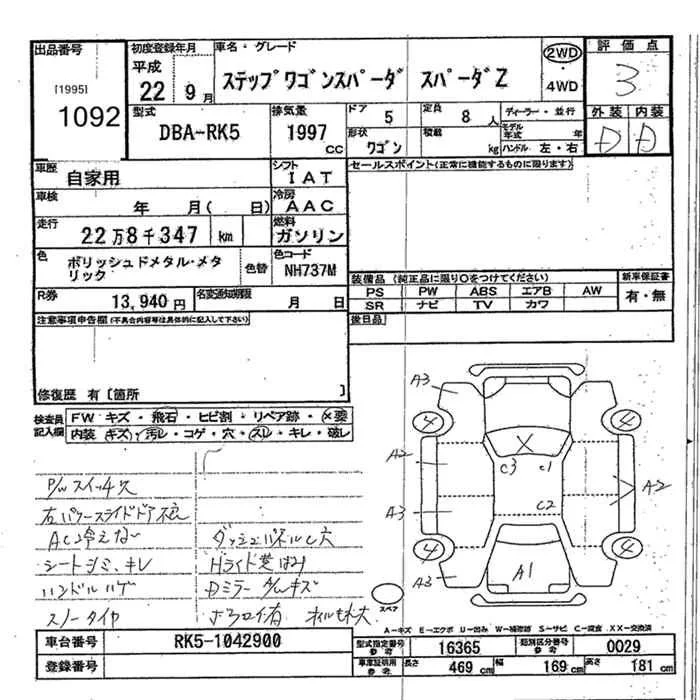 出品番号
[1995]
1092
初度登録年月
平成
22 9月
車名・グレード
ステップワゴンスパーダ スパーダZ
2WD
・
4WD
評価点
3
外装 内装
D D
型式
DBA-RK5
排気量
1997 cc
ドア
5
定員
8 人
形状
ワゴン
積載
kg
ディーラー・並行
モデル年式 年
ハンドル 左・右
車歴
自家用
シフト
IAT
車検
年 月( 日)
冷房
AAC
走行
22万8千347 km
燃料
ガソリン
色
ポリッシュドメタル・メタリック
色替
色コード
NH737M
R券
13,940円
名変通知期限
月 日
セールスポイント(正常に機能するものに限ります)
装備品 (純正品に限り○をつけてください)
PS PW ABS エアB AW
SR ナビ TV カワ
新車保証書
有・無
後日品
注意事項申告欄(不具合内容等は具体的に記入して下さい)
修復歴 有〔箇所 〕
検査員記入欄
FW キズ・飛石・ヒビ割・リペア跡・×要
内装 キズ・汚レ・コゲ・穴・スレ・キレ・破レ
P/Wスイッチ欠
右パワースライドドア不
AC冷えない
シートシミ、キレ
ハンドルハゲ
スノータイヤ
ダッシュパネルC穴
Hライト黄ばみ
Dミラーカバーキズ
A3
4
4
A2
A3
4
4
A3
X
C3
C1
C2
A1
A2
スペア
A-キズ E-エクボ U-凹み W-補修跡 S-サビ C-腐食 XX-交換済
車台番号
RK5-1042900
登録番号
型式指定番号 参考
16365
類別区分番号 参考
0029
車庫証明用 参考
長さ 469cm
幅 169cm
高さ 181cm